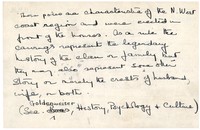 These poles are characteristic of the N. West
coast region and were erected in
front of the houses. As a rule the
carvings represent the legendary
history of the clan or family but
they may also represent some other
story or merely the crests of husband,
wife, or both.
(See Goldenweiser, History, Psychology & Culture)